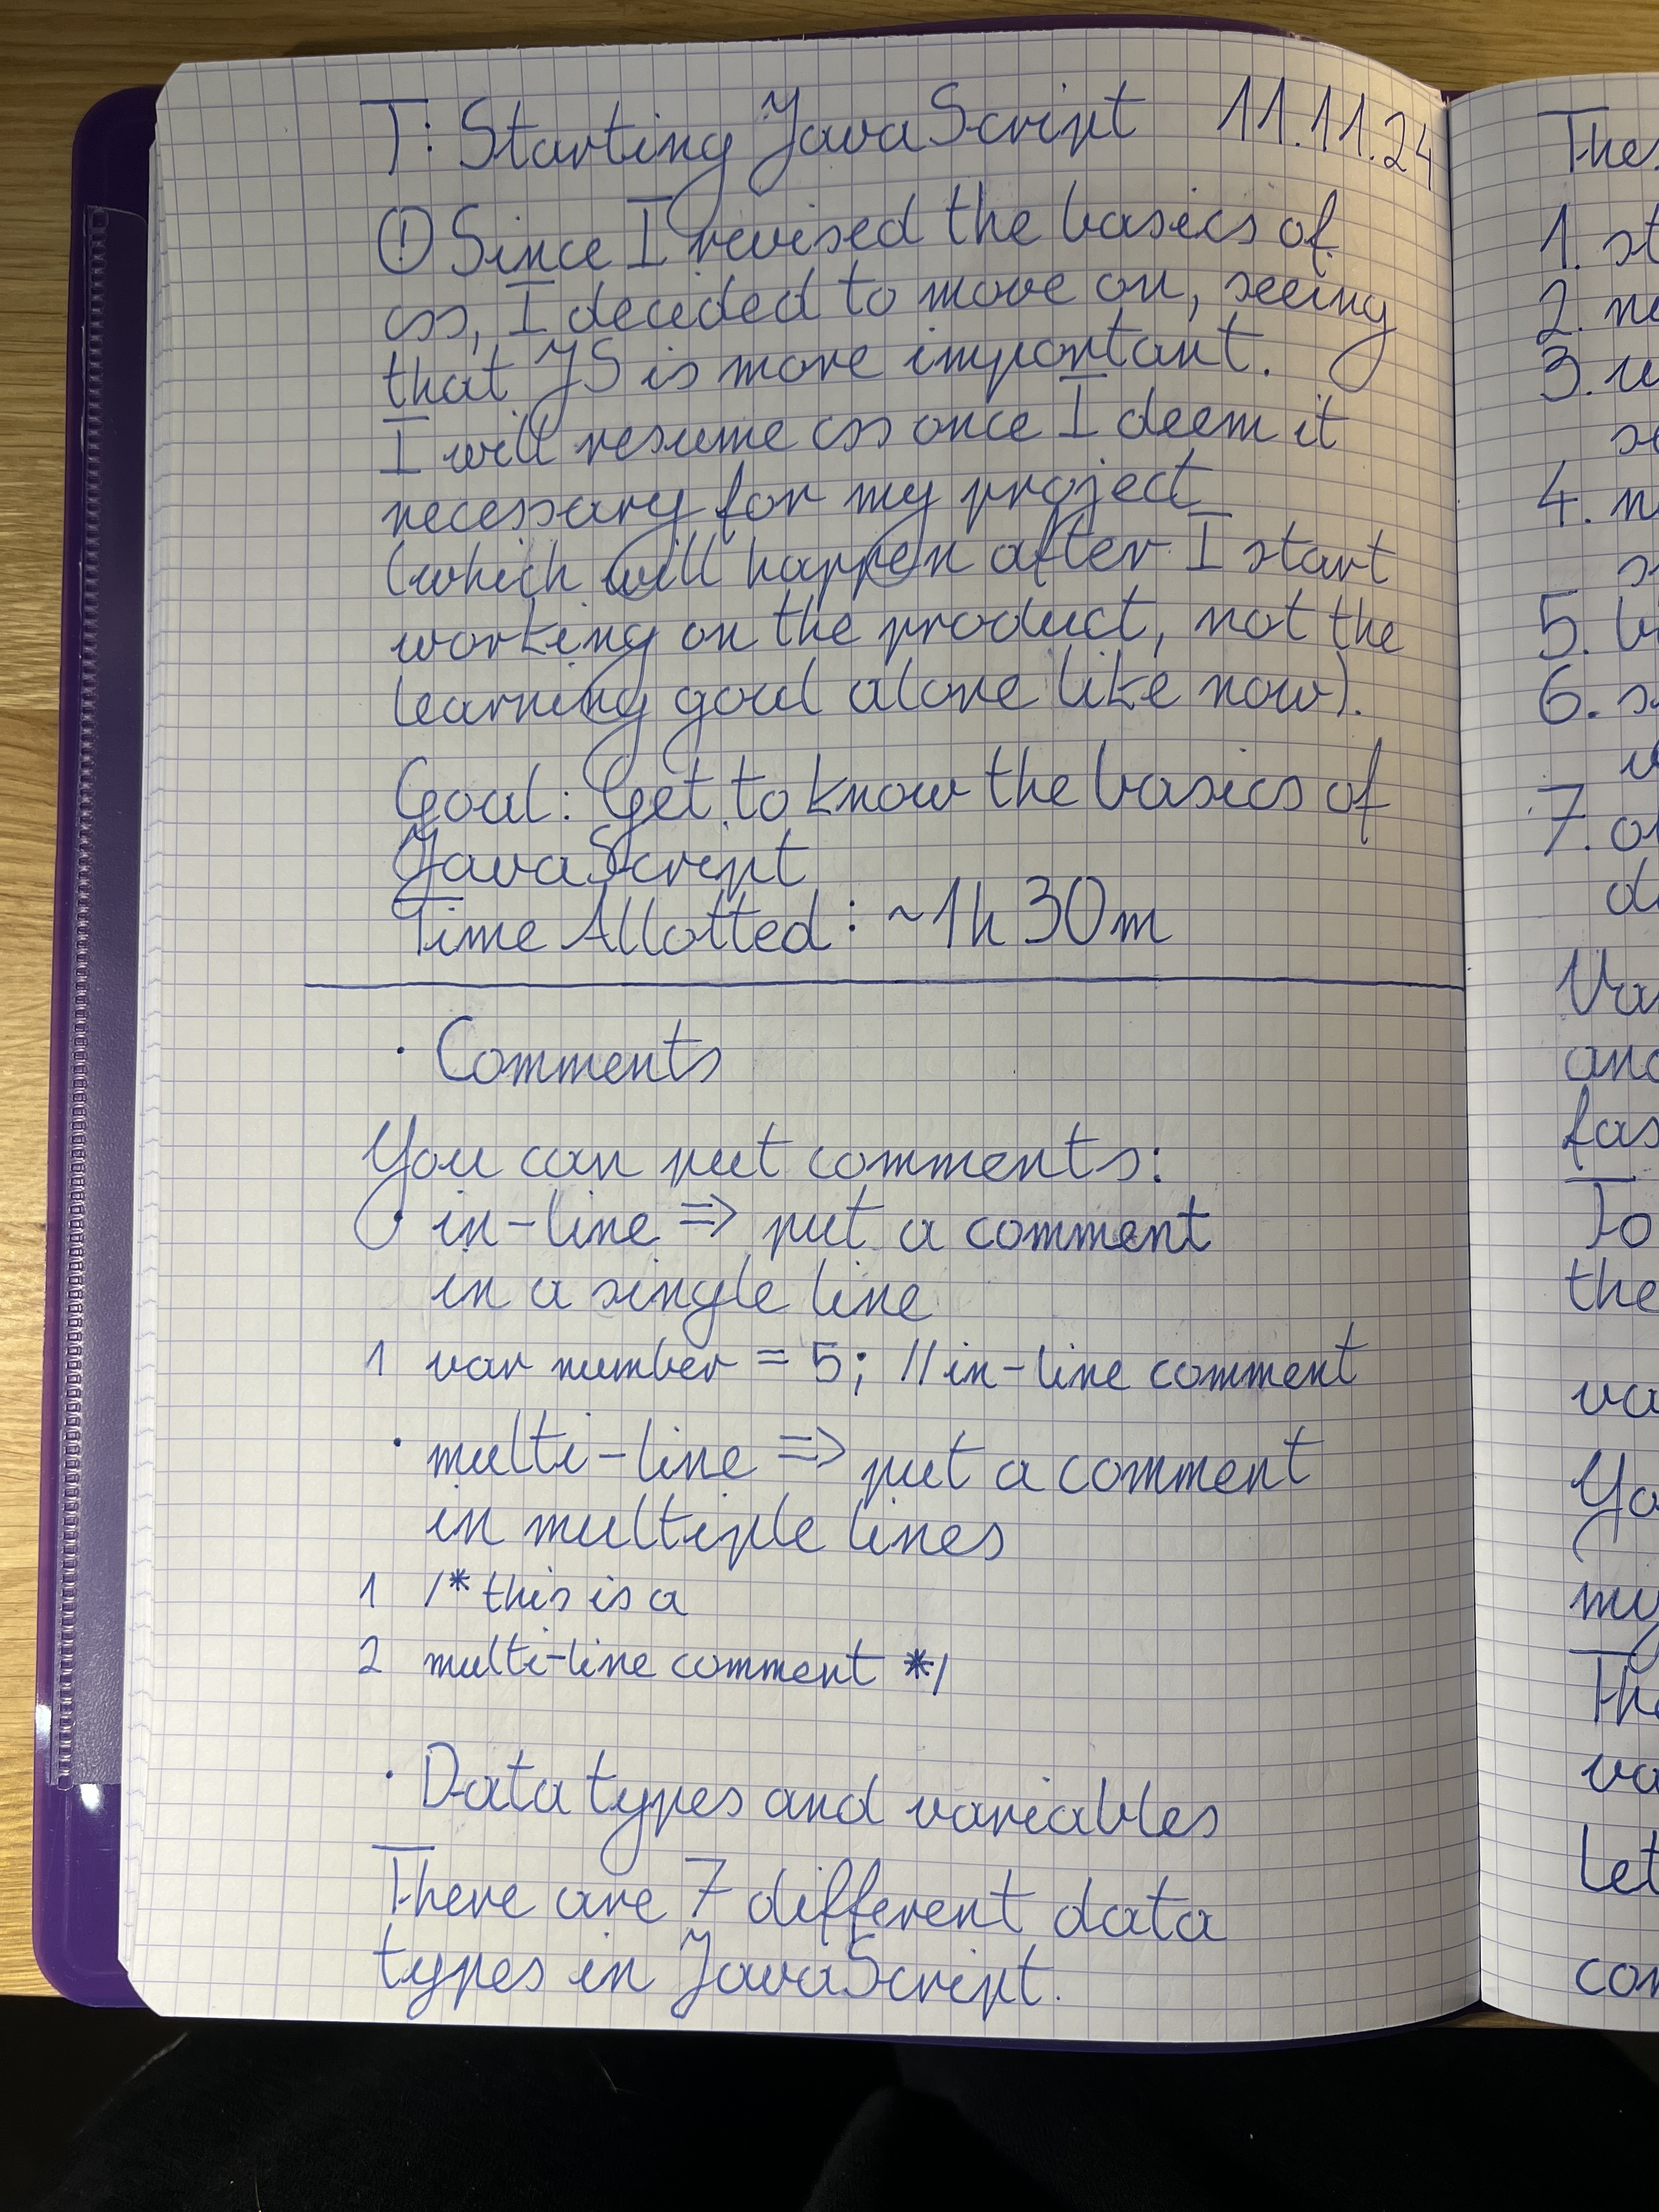 T: Starting JavaScript 11.11.24
! Since I revised the basics of
css, I decided to move on, seeing
that JS is more important.
I will resume css once I deem it
necessary for my project
(which will happen after I start
working on the product, not the
learning goal alone like now).
Goal: Get to know the basics of
JavaScript
Time Allotted: ~1h 30m
• Comments
You can put comments:
• in-line => put a comment
in a single line
1 var number = 5; //in-line comment
• multi-line => put a comment
in multiple lines
1 /* this is a
2 multi-line comment */
• Data types and variables
There are 7 different data
types in JavaScript.
1.
2.
3.
4.
5.
6.
7.
To
the